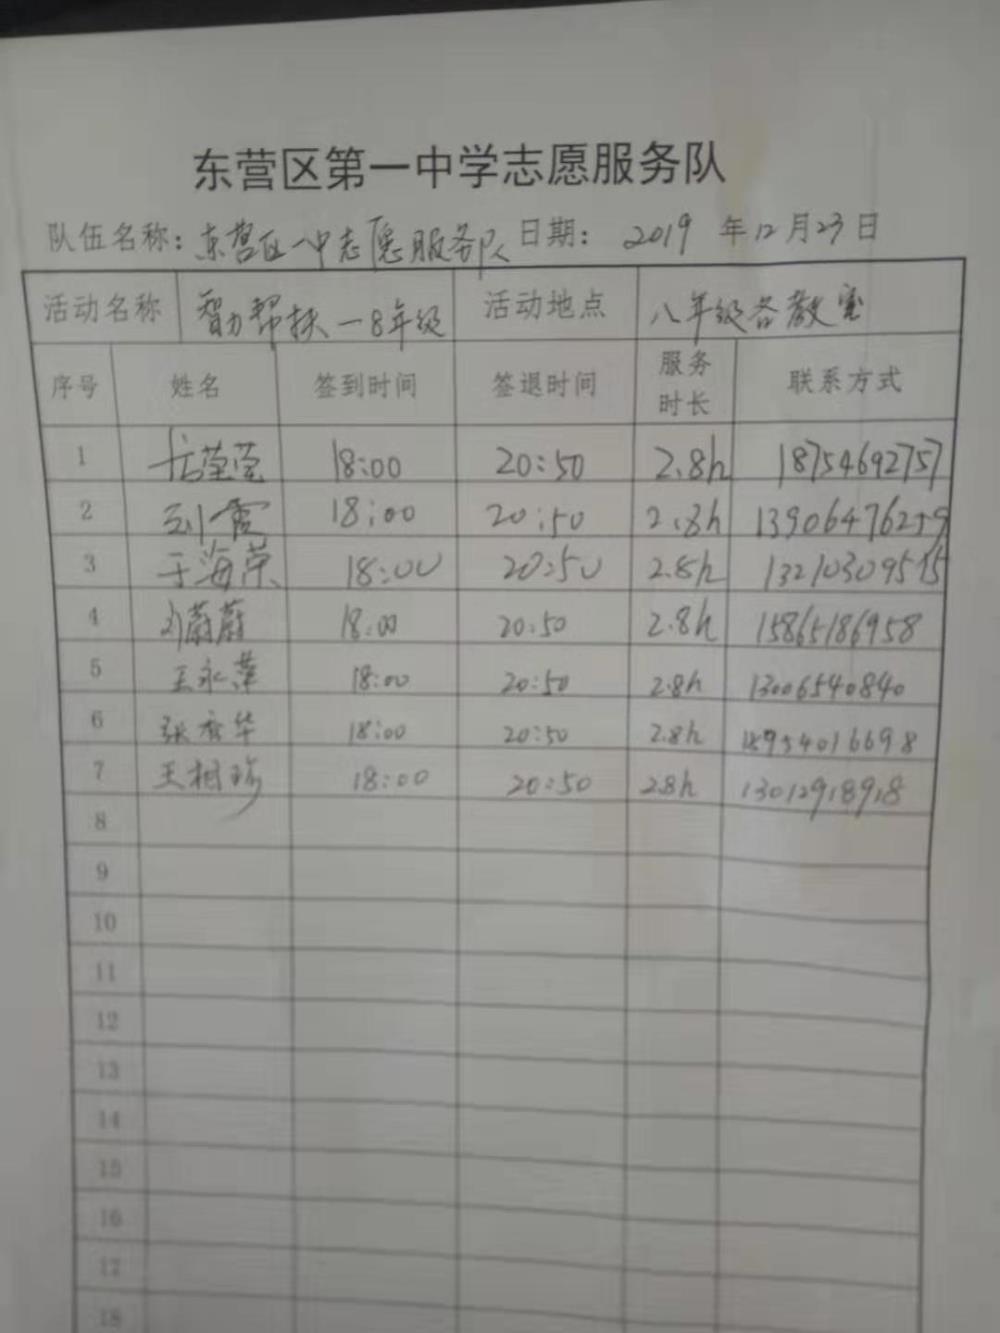 东营区第一中学志愿服务队
队伍名称：东营区一中志愿服务队 日期： 2019 年12月23日
活动名称 智力帮扶一8年级 活动地点 八年级各教室
序号 姓名 签到时间 签退时间 服务时长 联系方式
1 莹莹 18:00 20:50 2.8h 18754692757
2 刘霞 18:00 20:50 2.8h 13906476259
3 于海荣 18:00 20:50 2.8h 13210309515
4 刘蔚蔚 18:00 20:50 2.8h 15865186958
5 王永萍 18:00 20:50 2.8h 13006540840
6 张秀华 18:00 20:50 2.8h 18954016698
7 王相珍 18:00 20:50 2.8h 13012918918
8
9
10
11
12
13
14
15
16
17
18